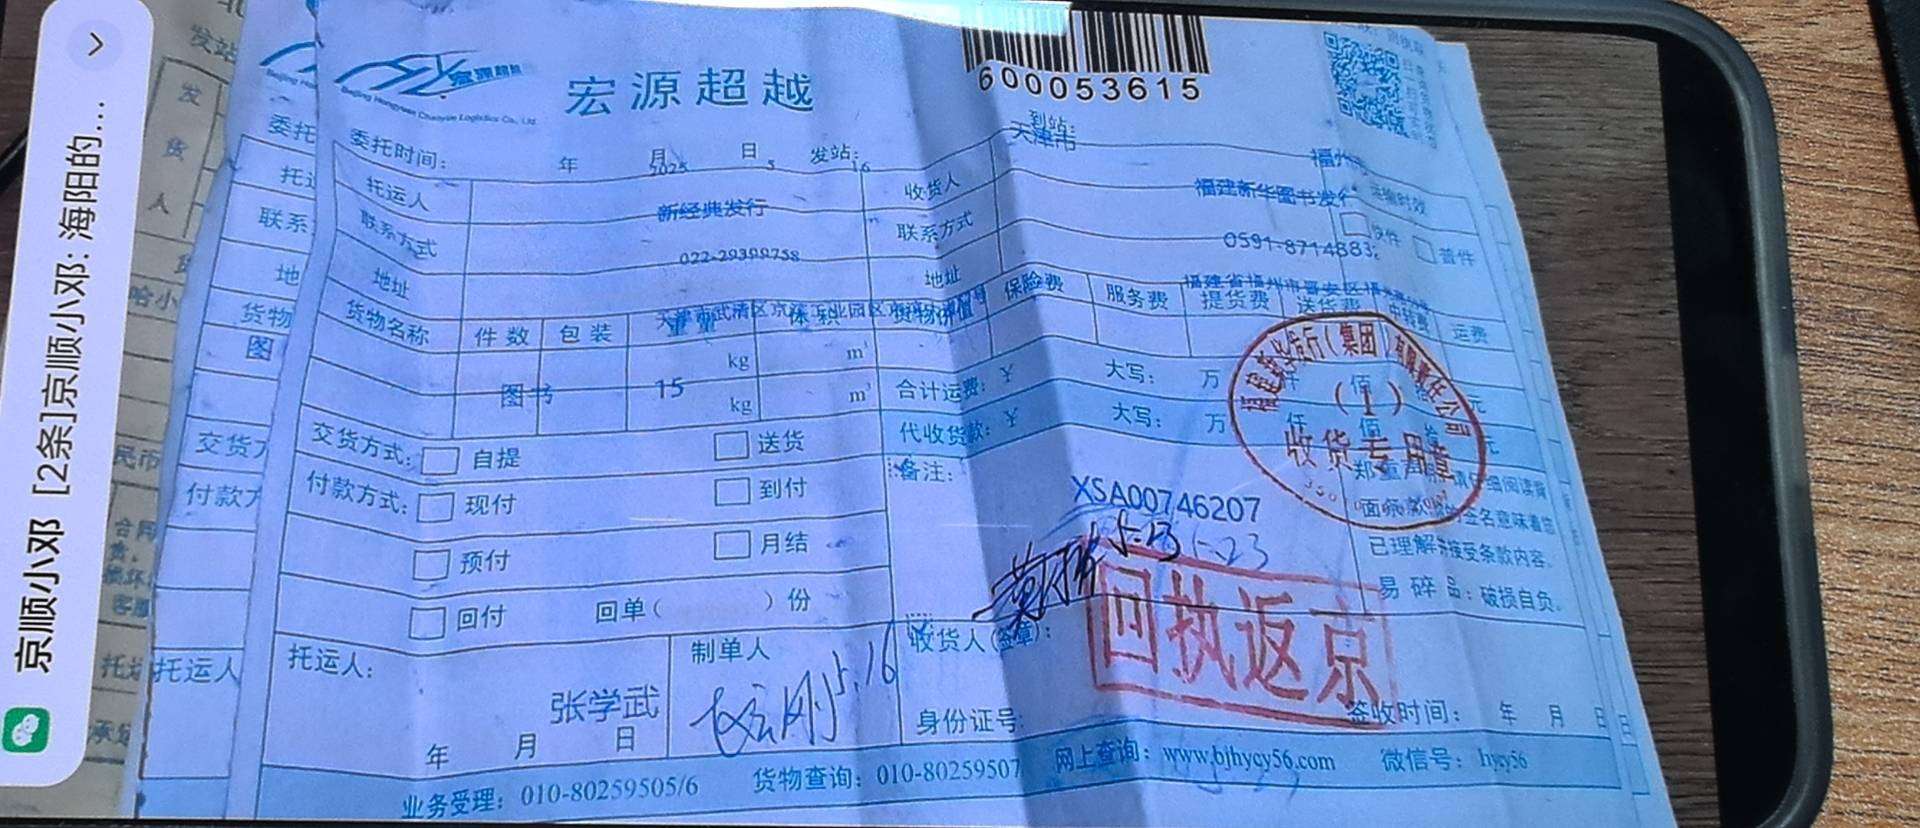 京顺小邓 [2条]京顺小邓: 海阳的...
宏源超越
宏源超越
Beijing Hongyuan Chaoyue Logistics Co., Ltd.
600053615
委托时间: 年 月 日 发站: 到站:
2025 5 16 天津市 福州
托运人 新经典发行 收货人 福建新华图书发行
运输时效
联系方式 022-29399758 联系方式 0591-8714883
快件 普件
地址 地址
货物名称 件数 包装 重量 体积 货物价值 保险费 服务费 提货费 送货费 中转费 运费
天津市武清区京滨工业园区
福建省福州市晋安区
kg m³
图书 15 kg m³
合计运费: ¥ 大写: 万 仟 佰 拾 元
代收货款: ¥ 大写: 万 仟 佰 拾 元
交货方式: 自提 送货
付款方式: 现付 到付
预付 月结
回付 回单( )份
备注:
XSA00746207
5-23
5-23
郑重声明:请仔细阅读背
面条款,您的签名意味着您
已理解并接受条款内容。
易碎品:破损自负。
福建新华发行(集团)有限责任公司
(1)
收货专用章
回执返京
托运人: 制单人 收货人(签章):
张学武
5.16
年 月 日
身份证号: 签收时间: 年 月 日
业务受理: 010-80259505/6 货物查询: 010-80259507 网上查询: www.bjhycy56.com 微信号: hycy56
发站
发
货
人
委托
托运
联系
地
货物
图
交货方
付款方
托运人